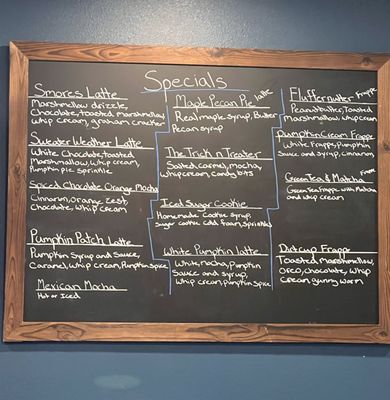 Specials
Smores Latte
Marshmellow drizzle,
Chocolate, toasted marshmallow
Whip cream, graham cracker
Sweater Weather Latte
White Chocolate, toasted
Marshmallow, Whip cream,
Pumpkin pie sprinkle
Spiced Chocolate Orange Mocha
Cinnamon, Orange Zest,
Chocolate, Whip cream
Pumpkin Patch Latte
Pumpkin Syrup and Sauce,
Caramel, Whip Cream, Pumpkin Spice
Mexican Mocha
Hot or Iced
Maple Pecan Pie Latte
Real maple syrup, Butter
Pecan syrup
The Trick n Treater
Salted caramel, mocha,
Whip cream, candy bits
Iced Sugar Cookie
Homemade Cookie Syrup
Sugar cookie cold foam, sprinkles
White Pumpkin Latte
White mocha, pumpkin
Sauce and syrup,
Whip cream, pumpkin spice
Fluffernutter Frappe
Peanutbutter, Toasted
Marshmallow, Whip cream
Pumpkin Cream Frappe
White Frappe, Pumpkin
Sauce and syrup, cinnamon
Green Tea & Matcha Frappe
Green tea frappe with Matcha
and Whip cream
Dirt cup Frappe
Toasted marshmallow,
Oreo, Chocolate, Whip
Cream, gummy worm